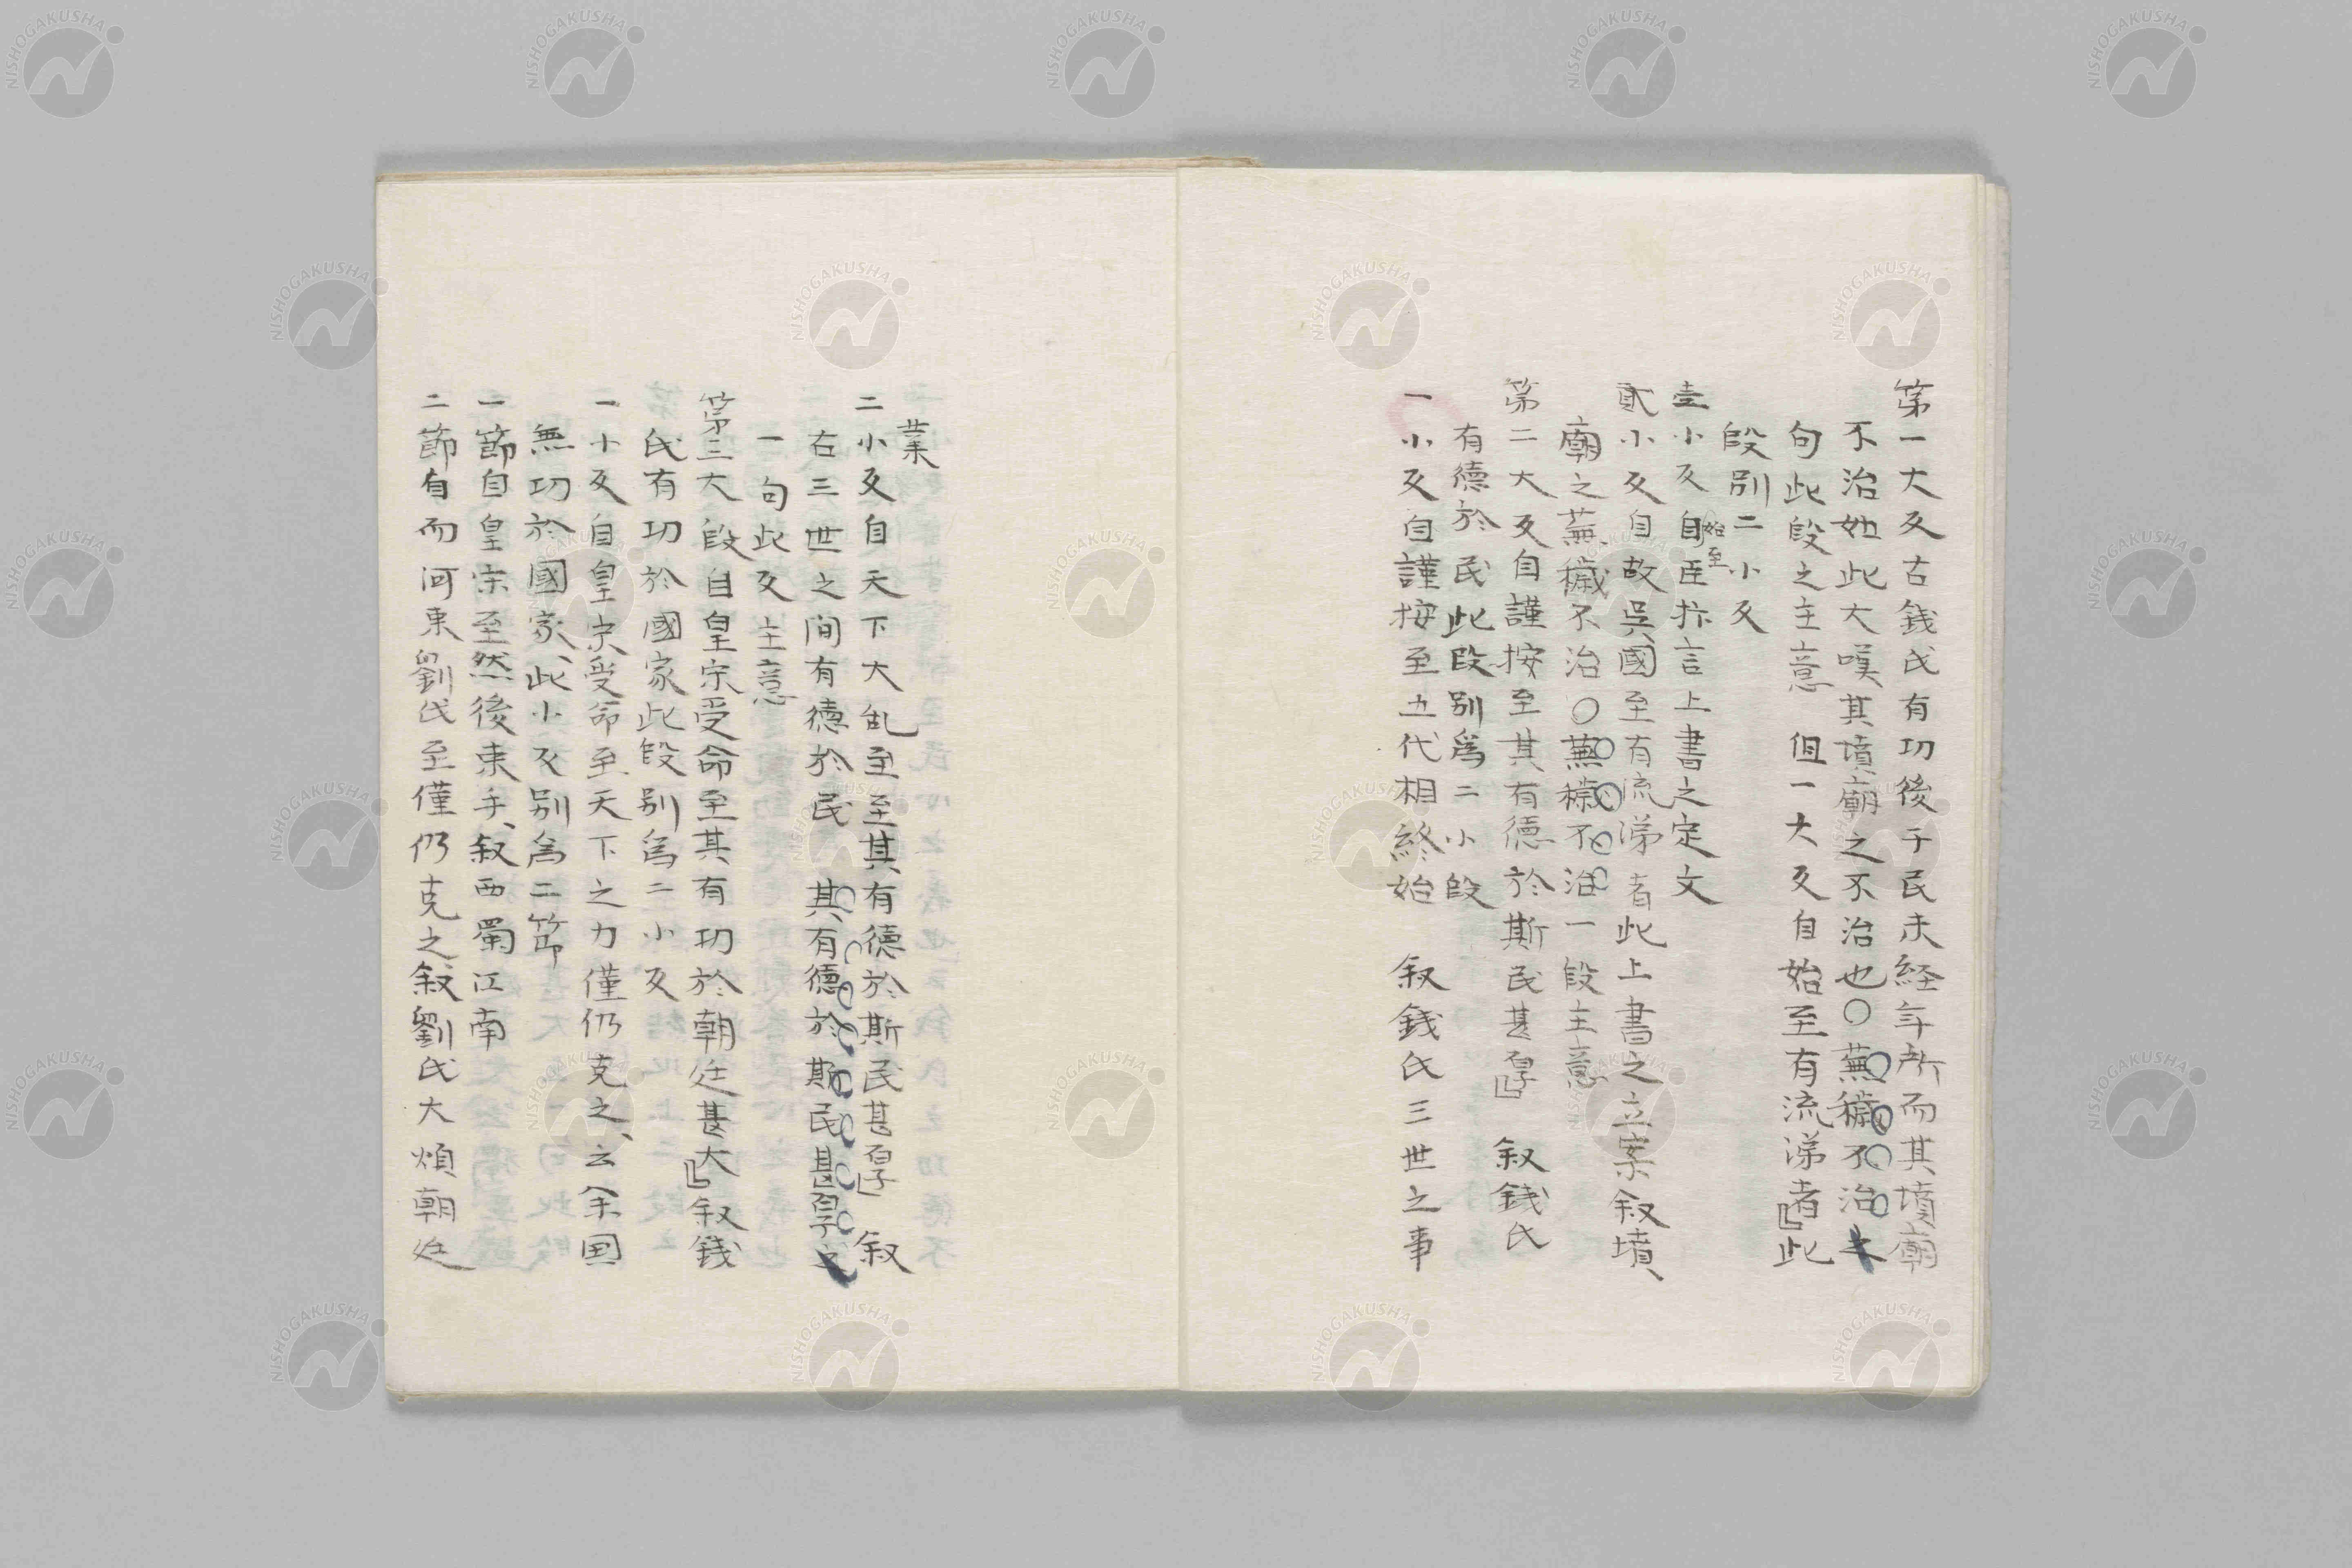 第一大叚古錢氏有功後于民未経年所而其墳廟
不治如此大嘆其墳廟之不治也○蕪穢不治之
句此段之主意 但一大叚自始至有流涕者』此
段別二小叚
壹小叚自始至臣抃言上書之定文
貳小叚自故呉國至有流涕者此上書之立案叙墳
廟之蕪穢不治○蕪穢不治一段主意
第二大叚自謹按至其有德於斯民甚厚』 叙錢氏
有德於民此段別爲二小段
一小叚自謹按至五代相終始 叙錢氏三世之事
業
二小叚自天下大乱至至其有德於斯民甚厚』 叙
右三世之间有德於民 其有德於斯民甚厚之
一句此叚主意
第三大段自皇宗受命至其有功於朝廷甚大』叙錢
氏有功於國家此段別爲二小叚
一小叚自皇宗受命至天下之力僅仍克之、云余国
無功於國家、此小叚別爲二節
一節自皇宗至然後束手、叙西蜀江南
二節自而河東劉氏至僅仍克之、叙劉氏大煩朝廷
NISHOGAKUSHA